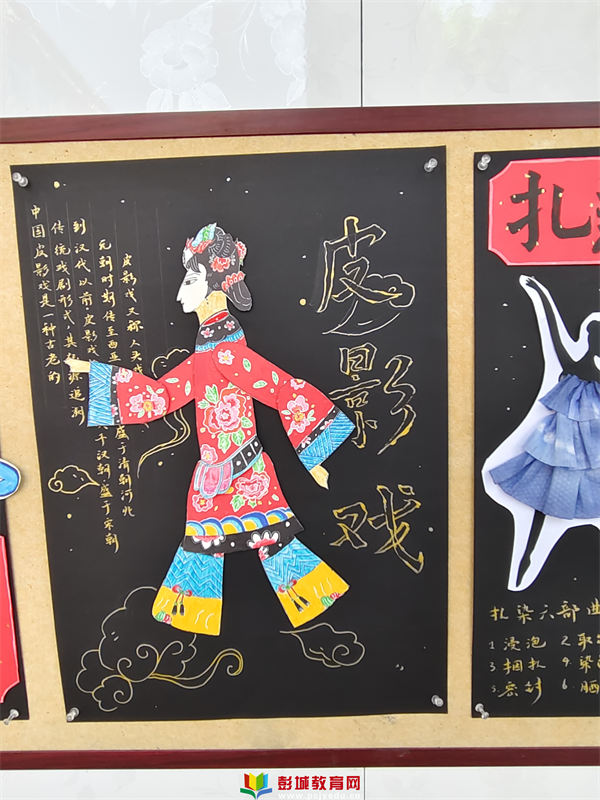 皮影戏
中国皮影戏是一种古老的
传统戏剧形式,其源追溯
到汉代以前,皮影戏于汉朝,盛于宋朝
元朝时期传至西亚
皮影戏又称人头戏盛于清朝河北
扎
扎染六部曲
1 浸泡 2 取
3 捆扎 4 染
5 密封 6 晒
彭城教育网